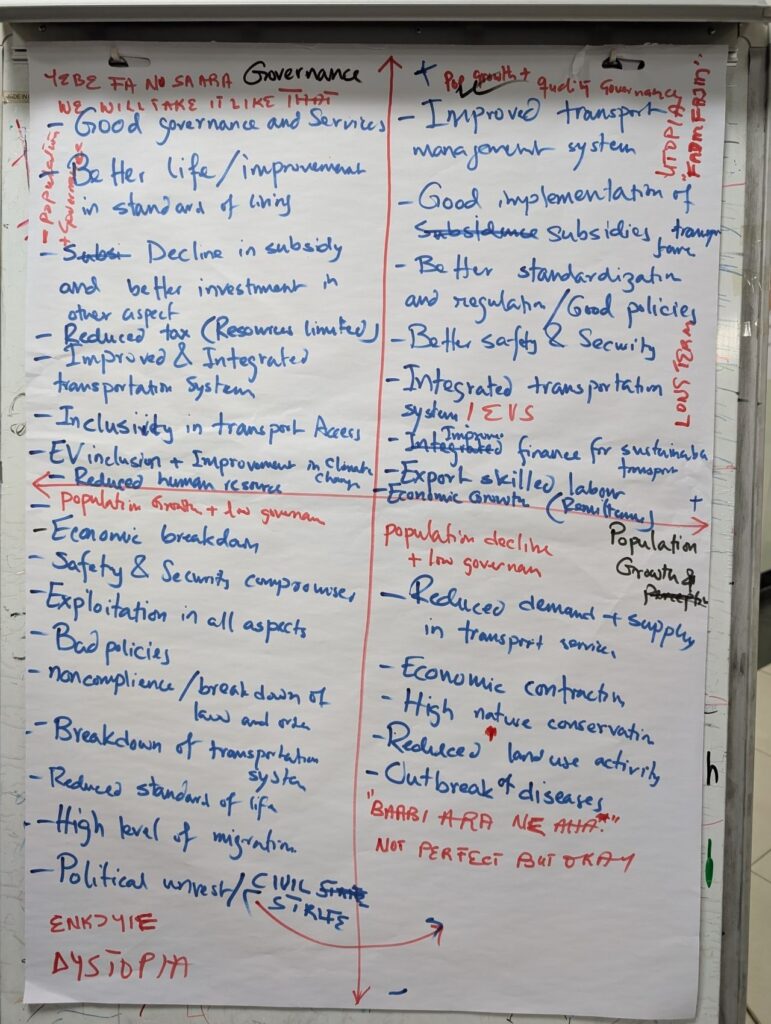 YEBE FA NO SAARA
WE WILL TAKE IT LIKE THAT
Governance
- Population
+ Governance
- Good governance and Services
- Better life/improvement
in standard of living
- Subsi Decline in subsidy
and better investment in
other aspect
- Reduced tax (Resources limited)
- Improved & Integrated
transportation System
- Inclusivity in transport Access
- EV inclusion + Improvement in Climate
change
- Reduced human resource
+
Pop growth + quality Governance
UTOPIA
"FADMFBJM"
- Improved transport
management system
- Good implementation of
subsidies
fare
- Better standardization
and regulation/Good policies
- Better safety & Security
LONG TERM
- Integrated transportation
system / EVS
- Integrated Improve finance for
transport
- Export skilled labour
- Economic Growth
+
Population
Growth &
- population Growth + low governan
- Economic breakdown
- Safety & Security compromises
- Exploitation in all aspects
- Bad policies
- noncomplience/breakdown of
law and order
- Breakdown of transportation
system
- Reduced standard of life
- High level of migration
- Political unrest/CIVIL STATE
STRIFE
ENKƆYIE
DYSTOPIA
population decline
+ low governan
- Reduced demand + supply
in transport services
- Economic contraction
- High nature conservation
- Reduced land use activity
- Outbreak of diseases
"BAABI ARA NE AHA"
NOT PERFECT BUT OKAY
-
h